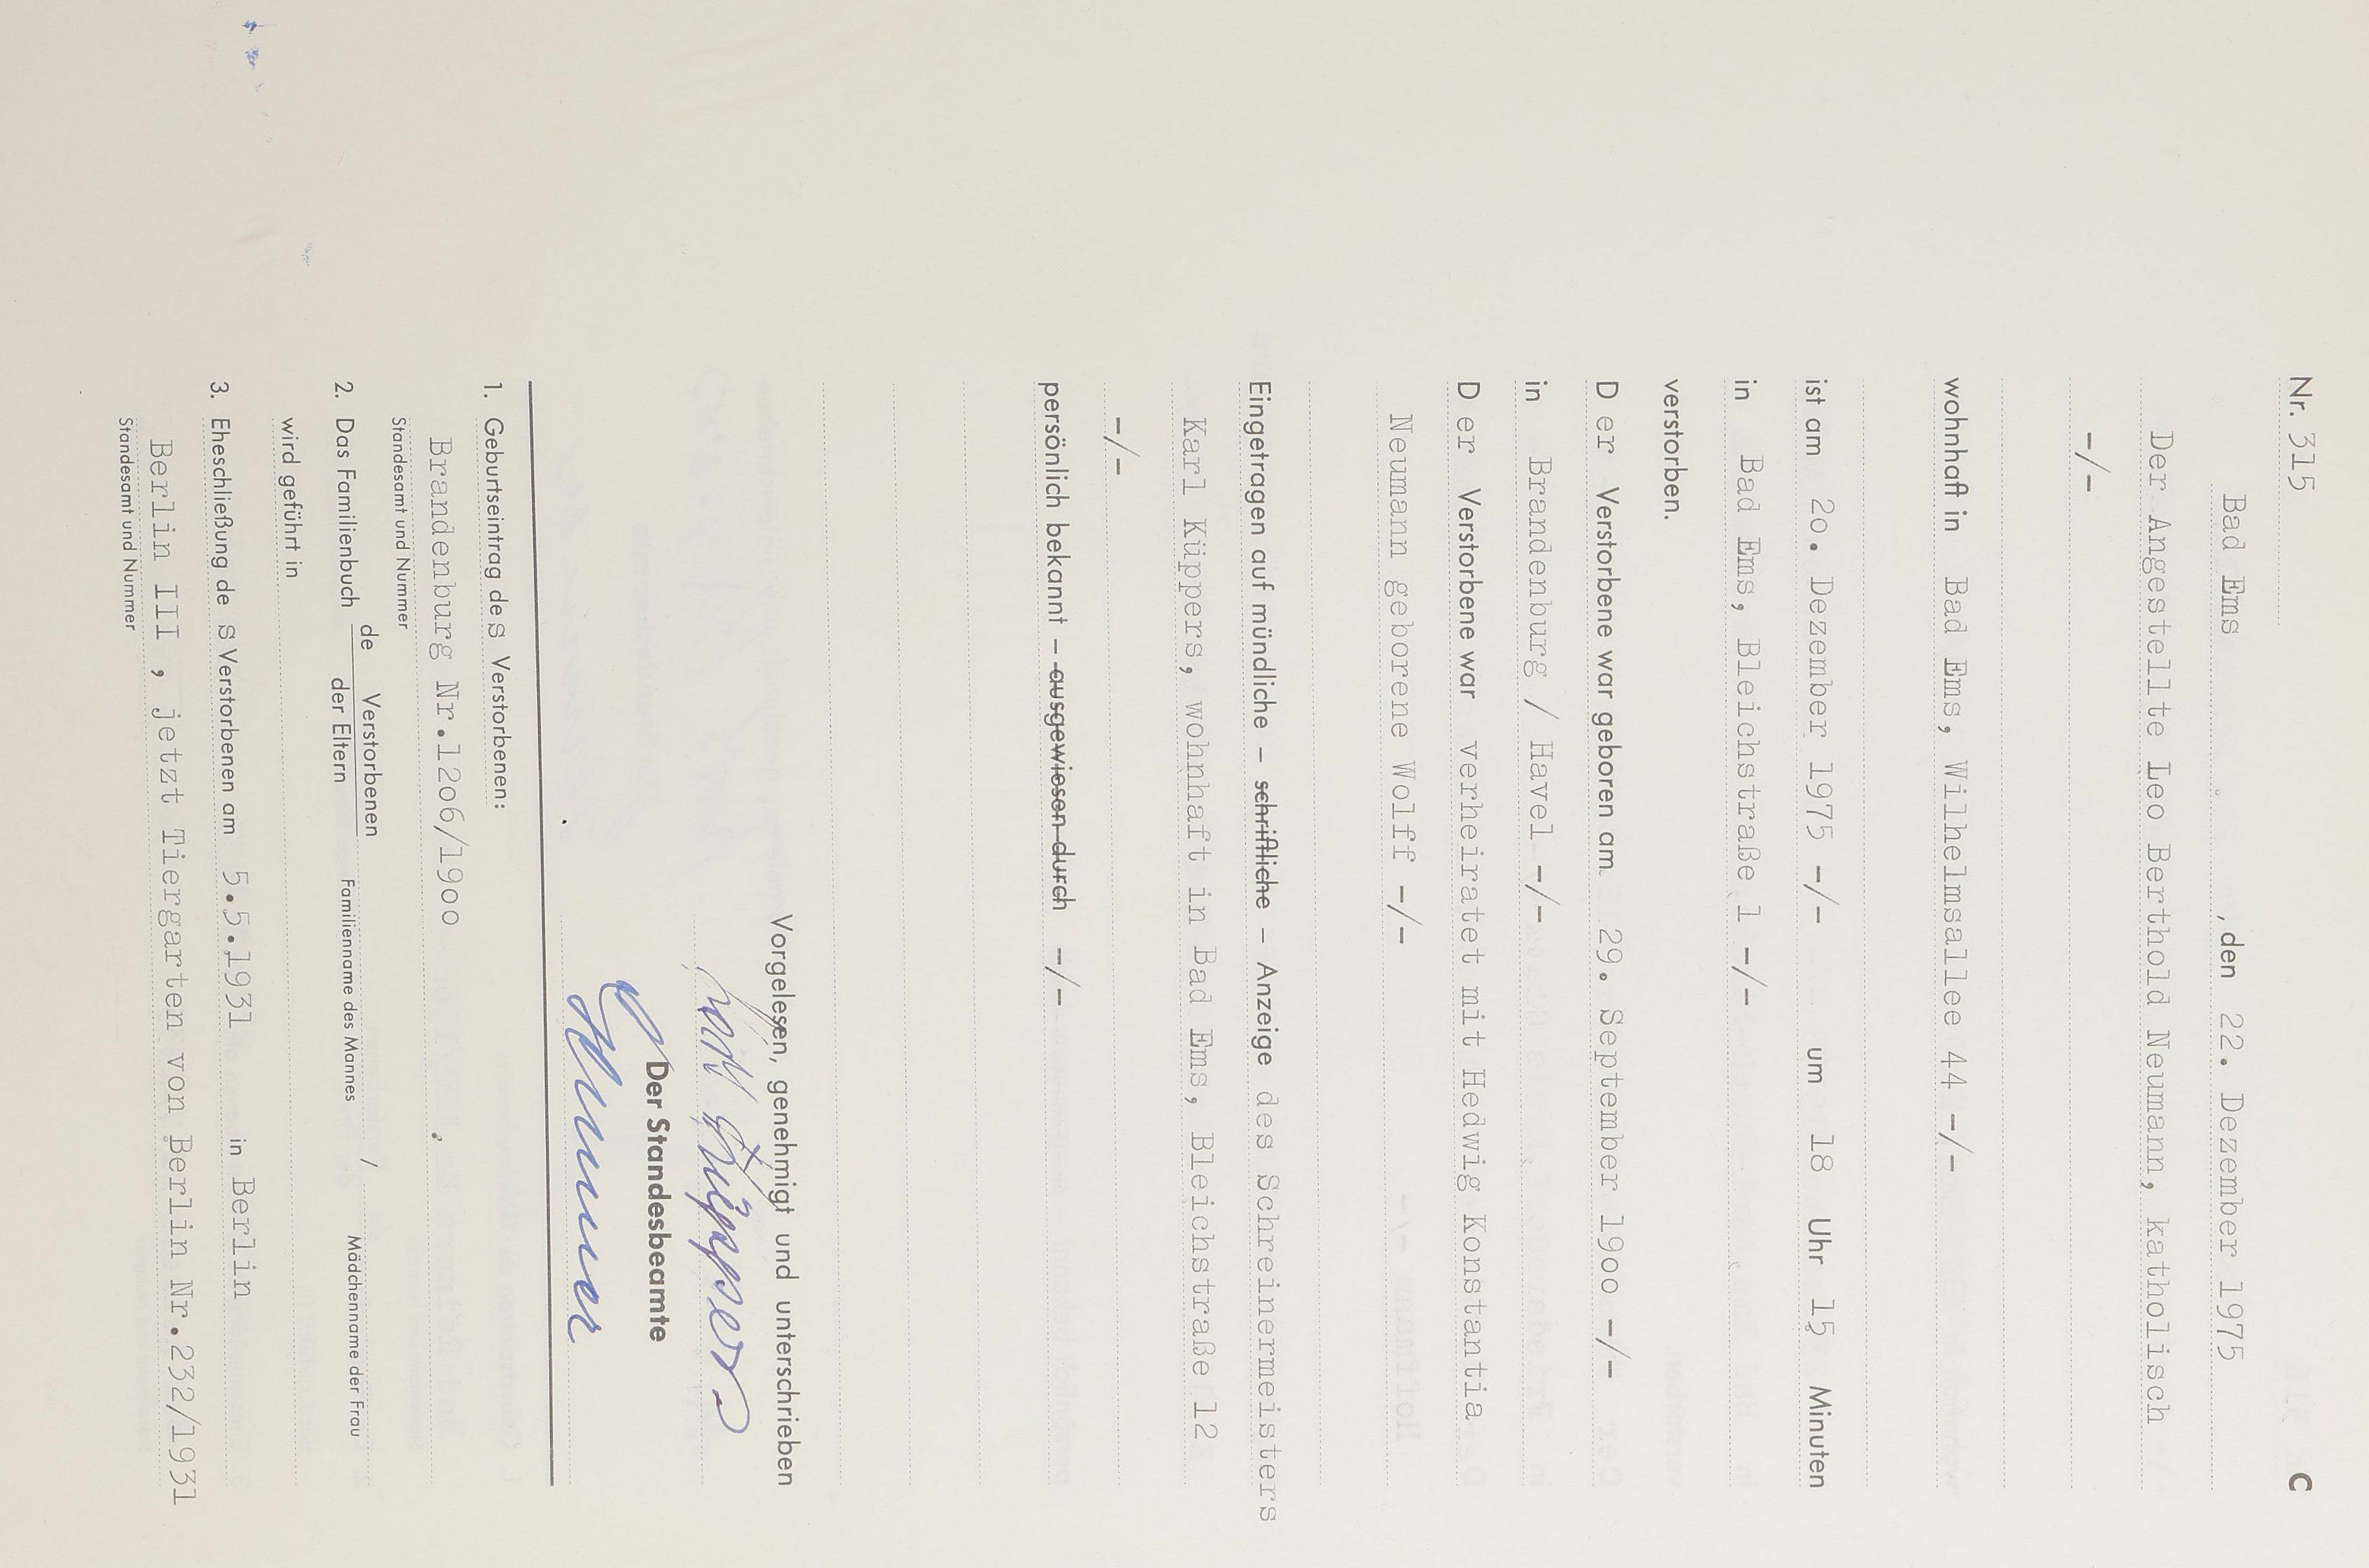 Nr. 315 C
Bad Ems , den 22. Dezember 1975
Der Angestellte Leo Berthold Neumann, katholisch
-/-
wohnhaft in Bad Ems, Wilhelmsallee 44 -/-
ist am 2o. Dezember 1975 -/- um 18 Uhr 15 Minuten
in Bad Ems, Bleichstraße 1 -/-
verstorben.
D er Verstorbene war geboren am 29. September 19oo -/-
in Brandenburg / Havel -/-
D er Verstorbene war verheiratet mit Hedwig Konstantia
Neumann geborene Wolff -/-
Eingetragen auf mündliche – schriftliche – Anzeige des Schreinermeisters
Karl Küppers, wohnhaft in Bad Ems, Bleichstraße 12
-/-
persönlich bekannt – ausgewiesen durch -/-
Vorgelesen, genehmigt und unterschrieben
Karl Küppers
Der Standesbeamte
1. Geburtseintrag des Verstorbenen:
Brandenburg Nr.12o6/19oo
Standesamt und Nummer
2. Das Familienbuch de Verstorbenen
der Eltern
Familienname des Mannes / Mädchenname der Frau
wird geführt in
3. Eheschließung de s Verstorbenen am 5.5.1931 in Berlin
Berlin III , jetzt Tiergarten von Berlin Nr.232/1931
Standesamt und Nummer